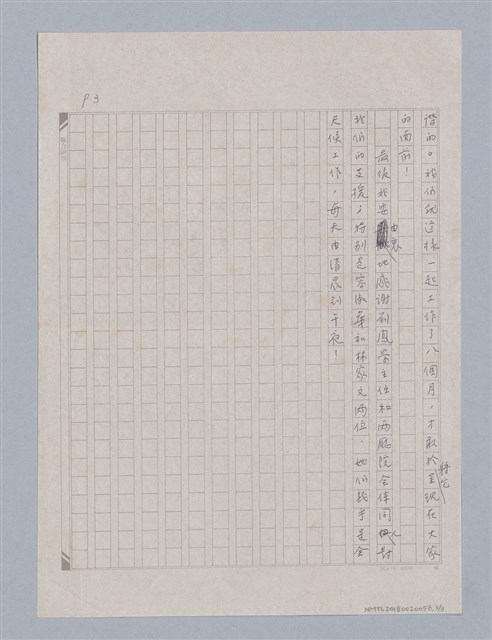 P3
諧的。我們就這樣一起工作了八個月，才敢於將它呈現在大家
的面前！
最後我要由衷地感謝劉鳳學主任和兩廳院全体同人對
我們的支援；特別是容淑華和林家文兩位，她們幾乎是全
天候工作，每天由清晨到午夜！
NMTL20180020058, 3/3